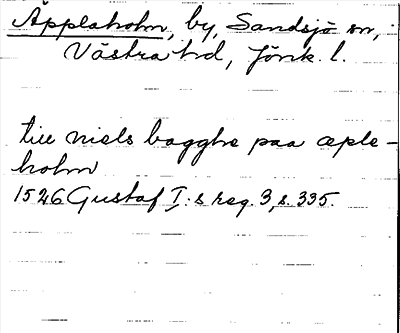 Äpplaholm, by, Sandsjö sn,
Västra hd, Jönk. l.
till niels bagghe paa æple-
holm
1526 Gustaf I:s reg. 3, s. 335.